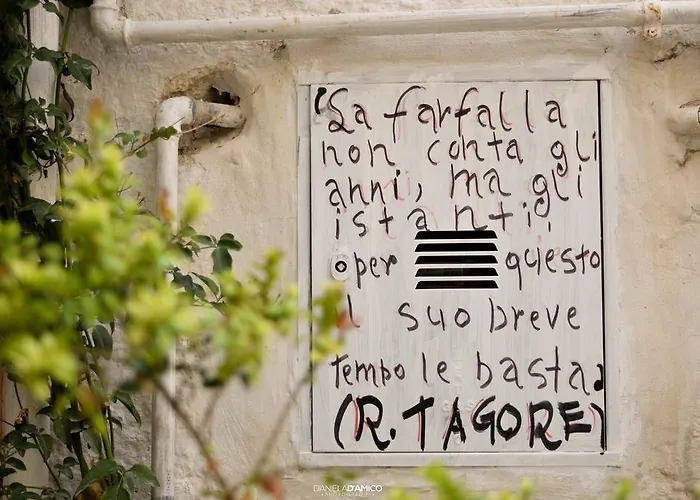 "La farfalla
non conta gli
anni, ma gli
istanti,
per questo
il suo breve
tempo le basta"
(R. TAGORE)
DANIELA D'AMICO
PHOTOGRAPHY